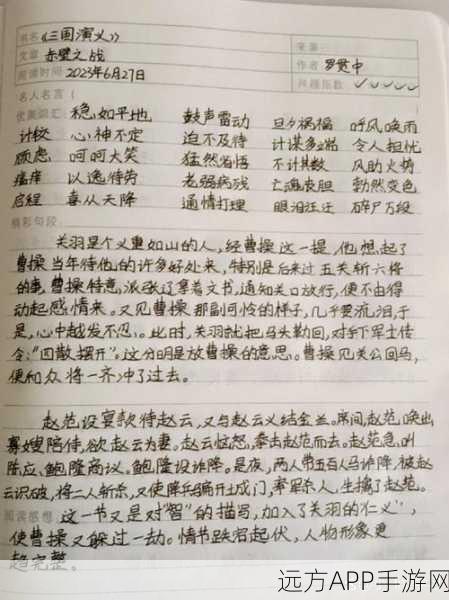 书名《三国演义》
来源
文章 赤壁之战
作者 罗贯中
阅读时间 2023年6月27日
兴趣指数 ✓✓✓✓✓
名人名言
优美词汇 稳如平地 鼓声雷动 旦夕祸福 呼风唤雨
计较 心神不定 迫不及待 计谋多端 令人担忧
顾虑 呵呵大笑 猛然省悟 不计其数 风助火势
瘙痒 以逸待劳 老弱病残 亡魂丧胆 勃然变色
启程 喜从天降 通情打理 眼泪汪汪 碎尸万段
精彩句段
关羽是个义重如山的人,经曹操这一提,他想起了
曹操当年待他的许多好处来,特别是后来过五关斩六将
的事,曹操特意派张辽拿着文书,通知关口放行,便不由得
动起感情来。又见曹操那副可怜的样子,几乎要流泪,于
是,心中越发不忍。此时,关羽就把马头勒回,对手下军士传
令:“四散摆开”。这分明是放曹操的意思。曹操见关公回马,
便和众将一齐冲了过去。
赵范设宴款待赵云,又与赵云义结金兰。席间,赵范唤出
寡嫂陪侍,欲赵云为妻。赵云恼怒,拳击赵范而去。赵范急叫
陈应、鲍隆商议。鲍隆设诈降。是夜,两人带五百人马诈降,被赵
云识破,将二人斩杀,又使降兵骗开土成门,率军杀人,生擒了赵范。
阅读感想 这一节又是对“智”的描写,加入了关羽的“仁义”,
使曹操又躲过一劫。情节跌宕起伏,人物形象更
趋完整。
远方APP手游网